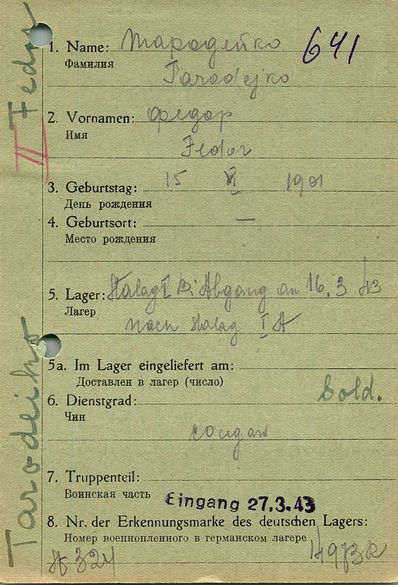 1. Name: Тародейко 641
Фамилия
Tarodejko
2. Vornamen: Федор
Имя
Fedor
3. Geburtstag: 15 VI 1901
День рождения
4. Geburtsort: —
Место рождения
5. Lager: Stalag I B. Abgang am 16.3.43
Лагер
nach Stalag I A
5a. Im Lager eingeliefert am:
Доставлен в лагер (число)
6. Dienstgrad: Sold.
Чин
солдат
7. Truppenteil:
Воинская часть Eingang 27.3.43
8. Nr. der Erkennungsmarke des deutschen Lagers:
Номер военнопленного в германском лагере
324
Tarodeiko II Fedor